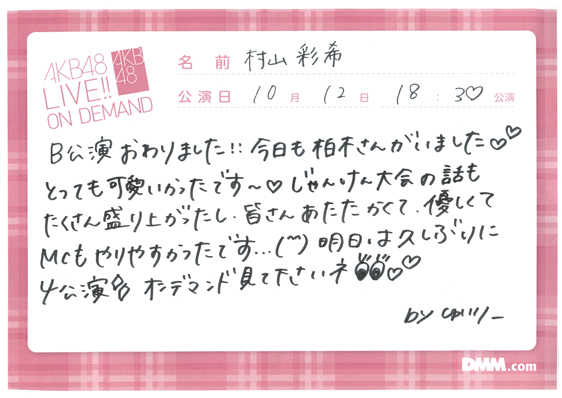 AKB48
LIVE!!
ON DEMAND
AKB
48
名前 村山彩希
公演日 10月 12日 18:30♡ 公演
B公演おわりました!! 今日も柏木さんがいました♡♡
とっても可愛いかったです〜♡ じゃんけん大会の話も
たくさん盛り上がったし、皆さんあたたかくて、優しくて
MCもやりやすかったです...(^^) 明日は久しぶりに
4公演 オンデマンド見て下さいネ ♡♡
by ゆいりー
DMM.com